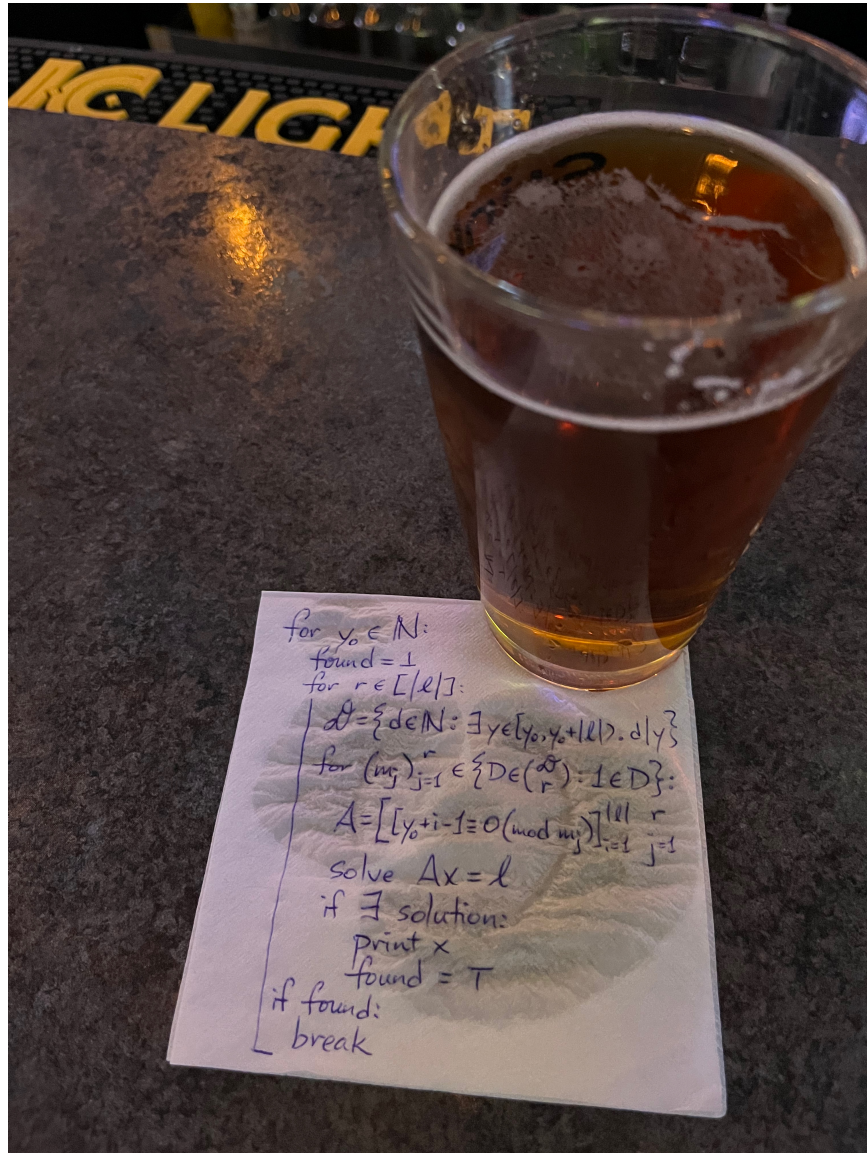 IC LIGHT
for y₀ ∈ ℕ:
found = 1
for r ∈ [|l|]:
𝒟 = {d∈ℕ: ∃y∈[y₀, y₀+|l|). d|y}
for (mⱼ)ʳⱼ₌₁ ∈ {D∈(𝒟 r) : 1∈D}:
A = [[y₀+i-1≡0(mod mⱼ)]^|l| i=1 ^r j=1
solve Ax = l
if ∃ solution:
print x
found = T
if found:
break